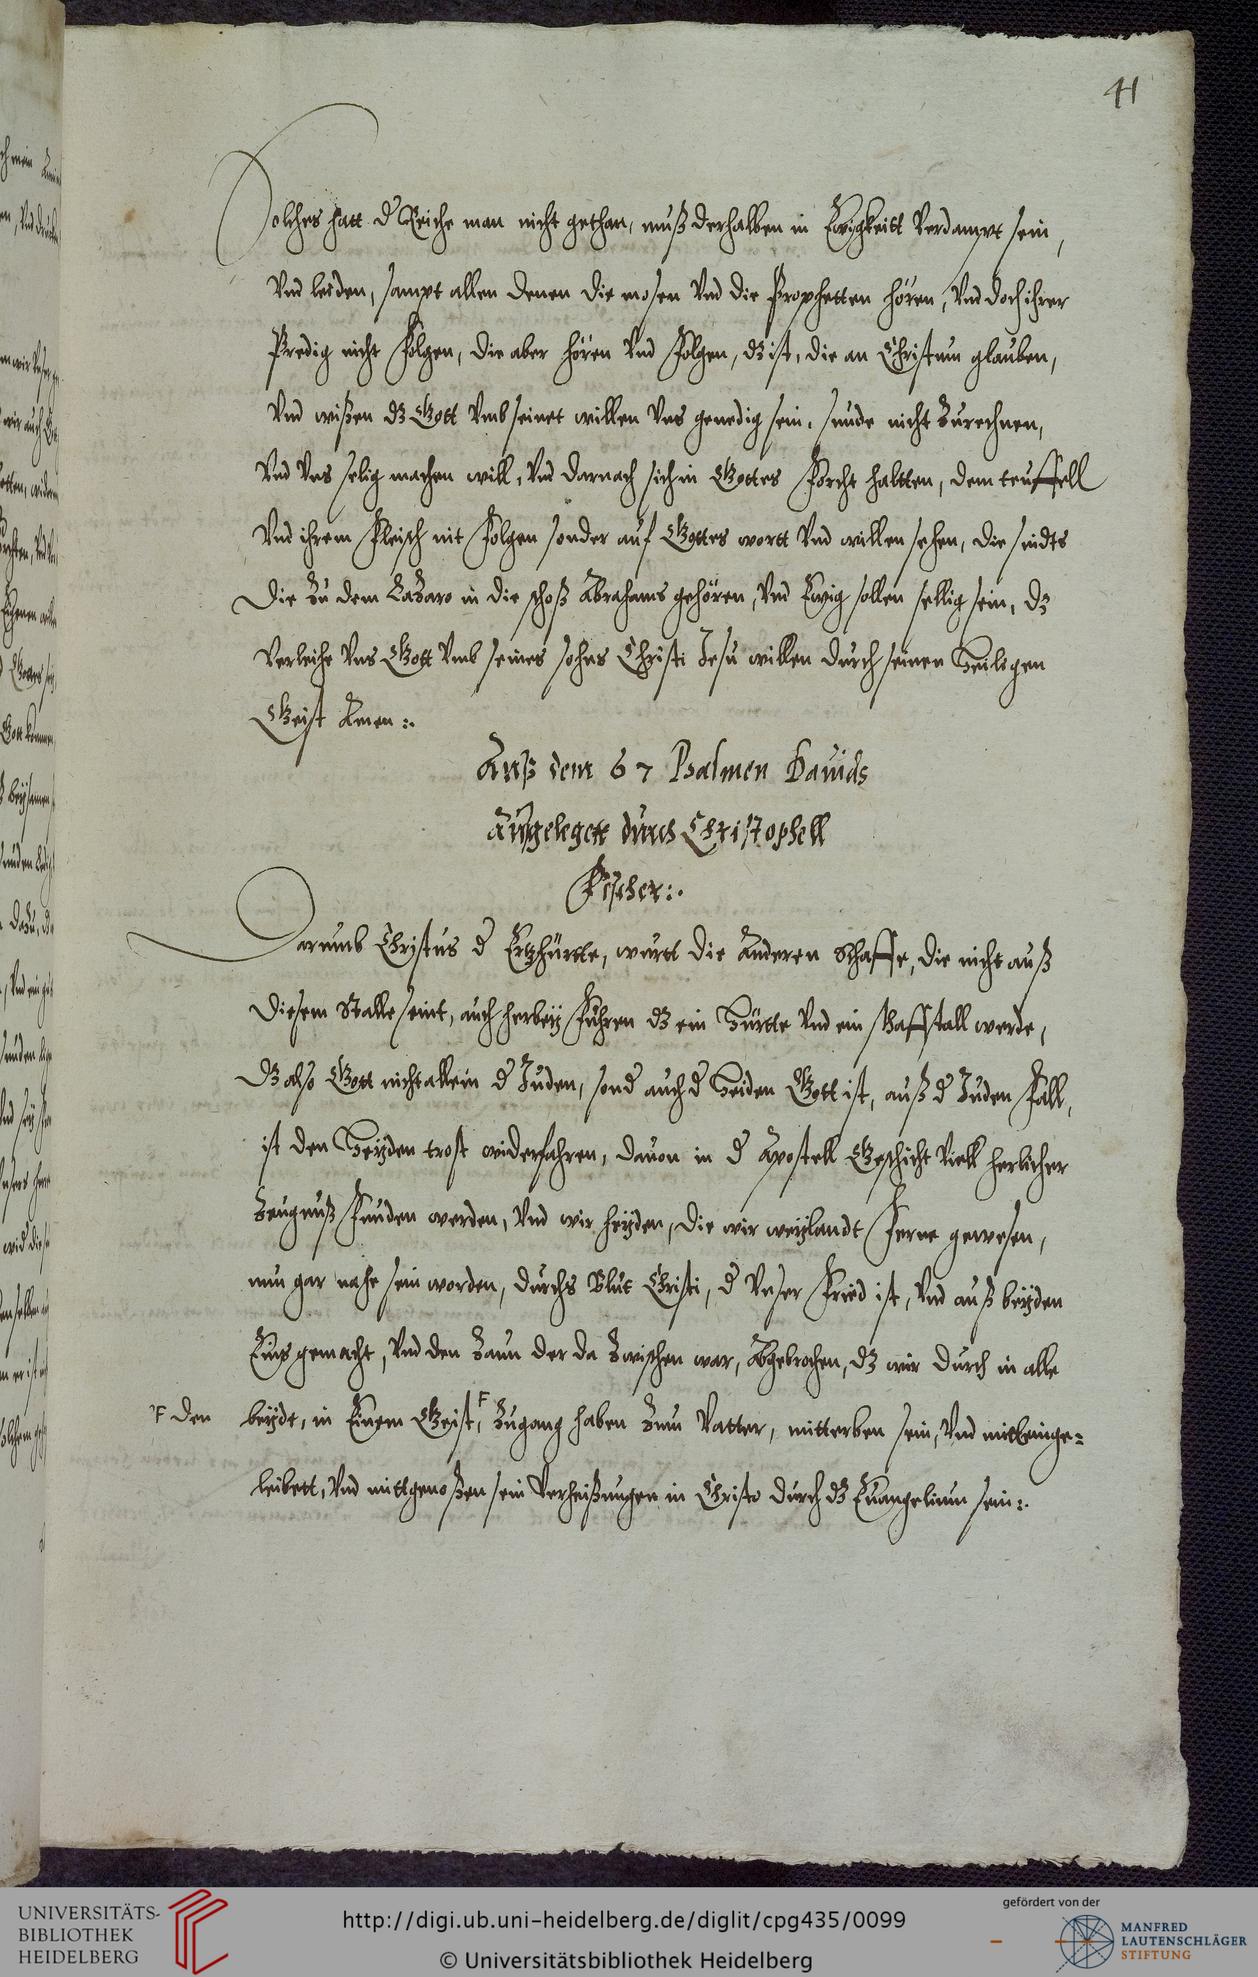 41
Solches hatt d Reiche man nicht gethan, muß derhalben in Ewigkeitt verdampt sein,
Vnd leiden, sampt allen denen die mosen Vnd die Prophetten hören, Vnd doch ihrer
Predig nicht folgen, die aber hören Vnd folgen, dz ist, die an Christum glauben,
Vnd wißen dz Gott Vmb seinet willen Vns genedig sein, sunde nicht Zurechnen,
Vnd Vns selig machen will, Vnd darnach sich in Gottes forcht haltten, dem teuffell
Vnd ihrem fleisch nit folgen sonder auf Gottes wortt Vnd willen sehen, die sindts
die Zu dem Lazaro in die schoß Abrahams gehören, Vnd Ewig sollen sellig sein, dz
Verleihe Vns Gott Vmb seines sohns Christi Jesu willen durch seinen Heiligen
Geist Amen :.
Auß dem 67 Psalmen Dauids
Außgelegett durch Christophell
Fischer :.
Darumb Christus d Ertzhürtte, wurtt die Anderen schaffe, die nicht auß
diesem Stalle seint, auch herbeÿ fuhren dz ein Hürtte Vnd ein schaffstall werde,
dz also Gott nicht allein d Juden, sond auch d Heiden Gott ist, auß d Juden fall,
ist den Heÿden trost widerfahren, dauon in d Apostell Geschicht Viell herlicher
Zeugnuß funden werden, Vnd wir heÿden, die wir weÿlandt ferne gewesen,
nun gar nahe sein worden, durchs Blut Christi, d Vnser Fried ist, Vnd auß beÿden
Eins gemacht, Vnd den Zaun der da Zwischen war, Abgebrochen, dz wir durch in alle
F den beÿde, in Einem Geist, F Zugang haben Zum Vatter, mitterben sein, Vnd mitEinge=
leibett, Vnd mittgenoßen sein Verheißungen in Christo durch dz Euangelium sein :.
UNIVERSITÄTS-
BIBLIOTHEK
HEIDELBERG
http://digi.ub.uni-heidelberg.de/diglit/cpg435/0099
© Universitätsbibliothek Heidelberg
gefördert von der
MANFRED
LAUTENSCHLÄGER
STIFTUNG